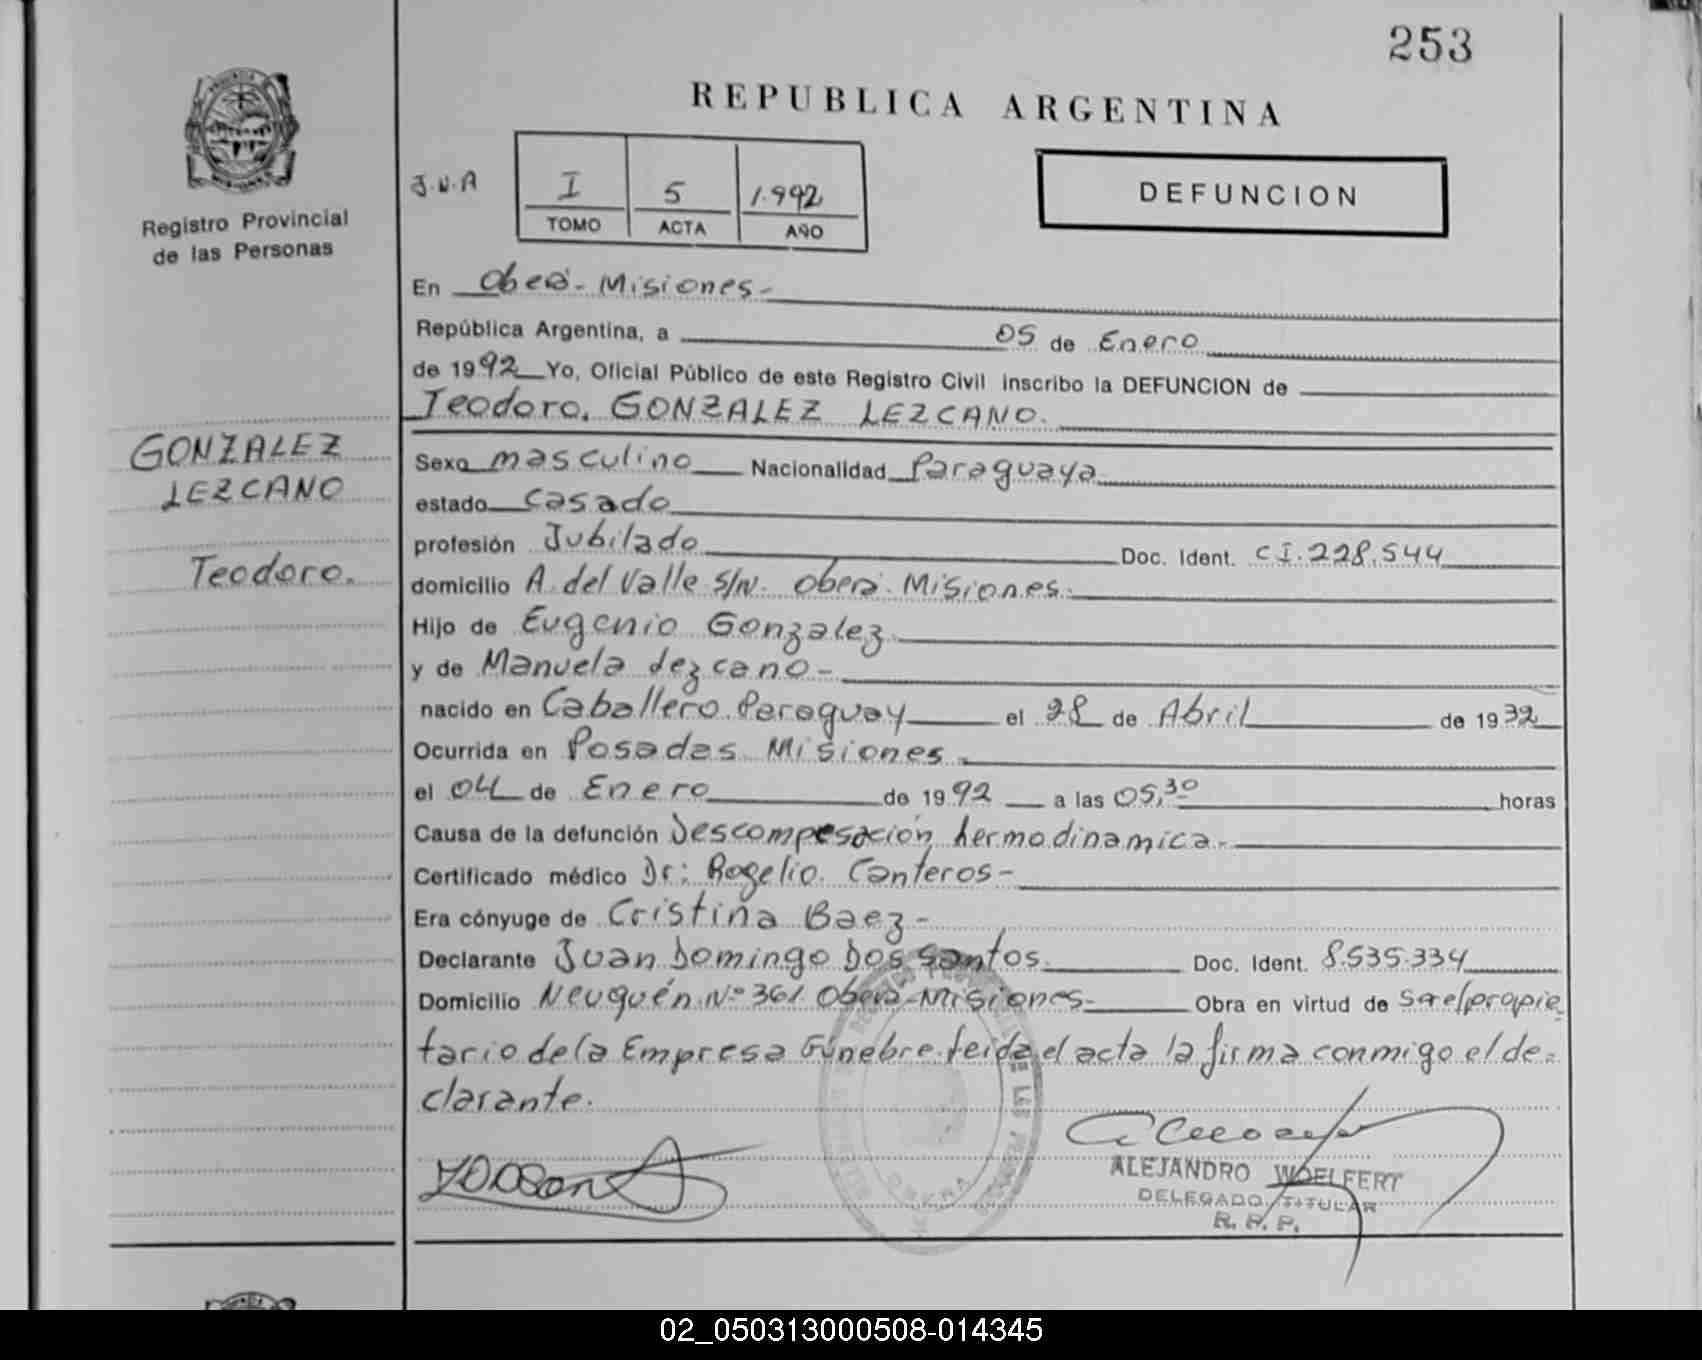 253
REPUBLICA ARGENTINA
Registro Provincial
de las Personas
J.N.A
I 5 1.992
TOMO ACTA AÑO
DEFUNCION
En Oberá - Misiones -
República Argentina, a 05 de Enero
de 1992 Yo, Oficial Público de este Registro Civil inscribo la DEFUNCION de
Teodoro. GONZALEZ LEZCANO.
GONZALEZ
LEZCANO
Teodoro.
Sexo masculino Nacionalidad Paraguaya
estado Casado
profesión Jubilado Doc. Ident. C I. 228.544
domicilio A. del Valle S/N. Oberá. Misiones.
Hijo de Eugenio Gonzalez
y de Manuela Lezcano -
nacido en Caballero. Paraguay el 28 de Abril de 1932
Ocurrida en Posadas. Misiones.
el 04 de Enero de 1992 a las 05,30 horas
Causa de la defunción Descompesación hermodinamica.
Certificado médico Dr: Rogelio. Canteros -
Era cónyuge de Cristina Baez -
Declarante Juan Domingo Dos Santos. Doc. Ident. 8.535.334
Domicilio Neuquén. Nº 361. Oberá - Misiones - Obra en virtud de propie
tario de la Empresa Fúnebre. leida el acta la firma conmigo el de-
clarante.
ALEJANDRO WOELFERT
DELEGADO TITULAR
R. P. P.
OBERA
02_050313000508-014345